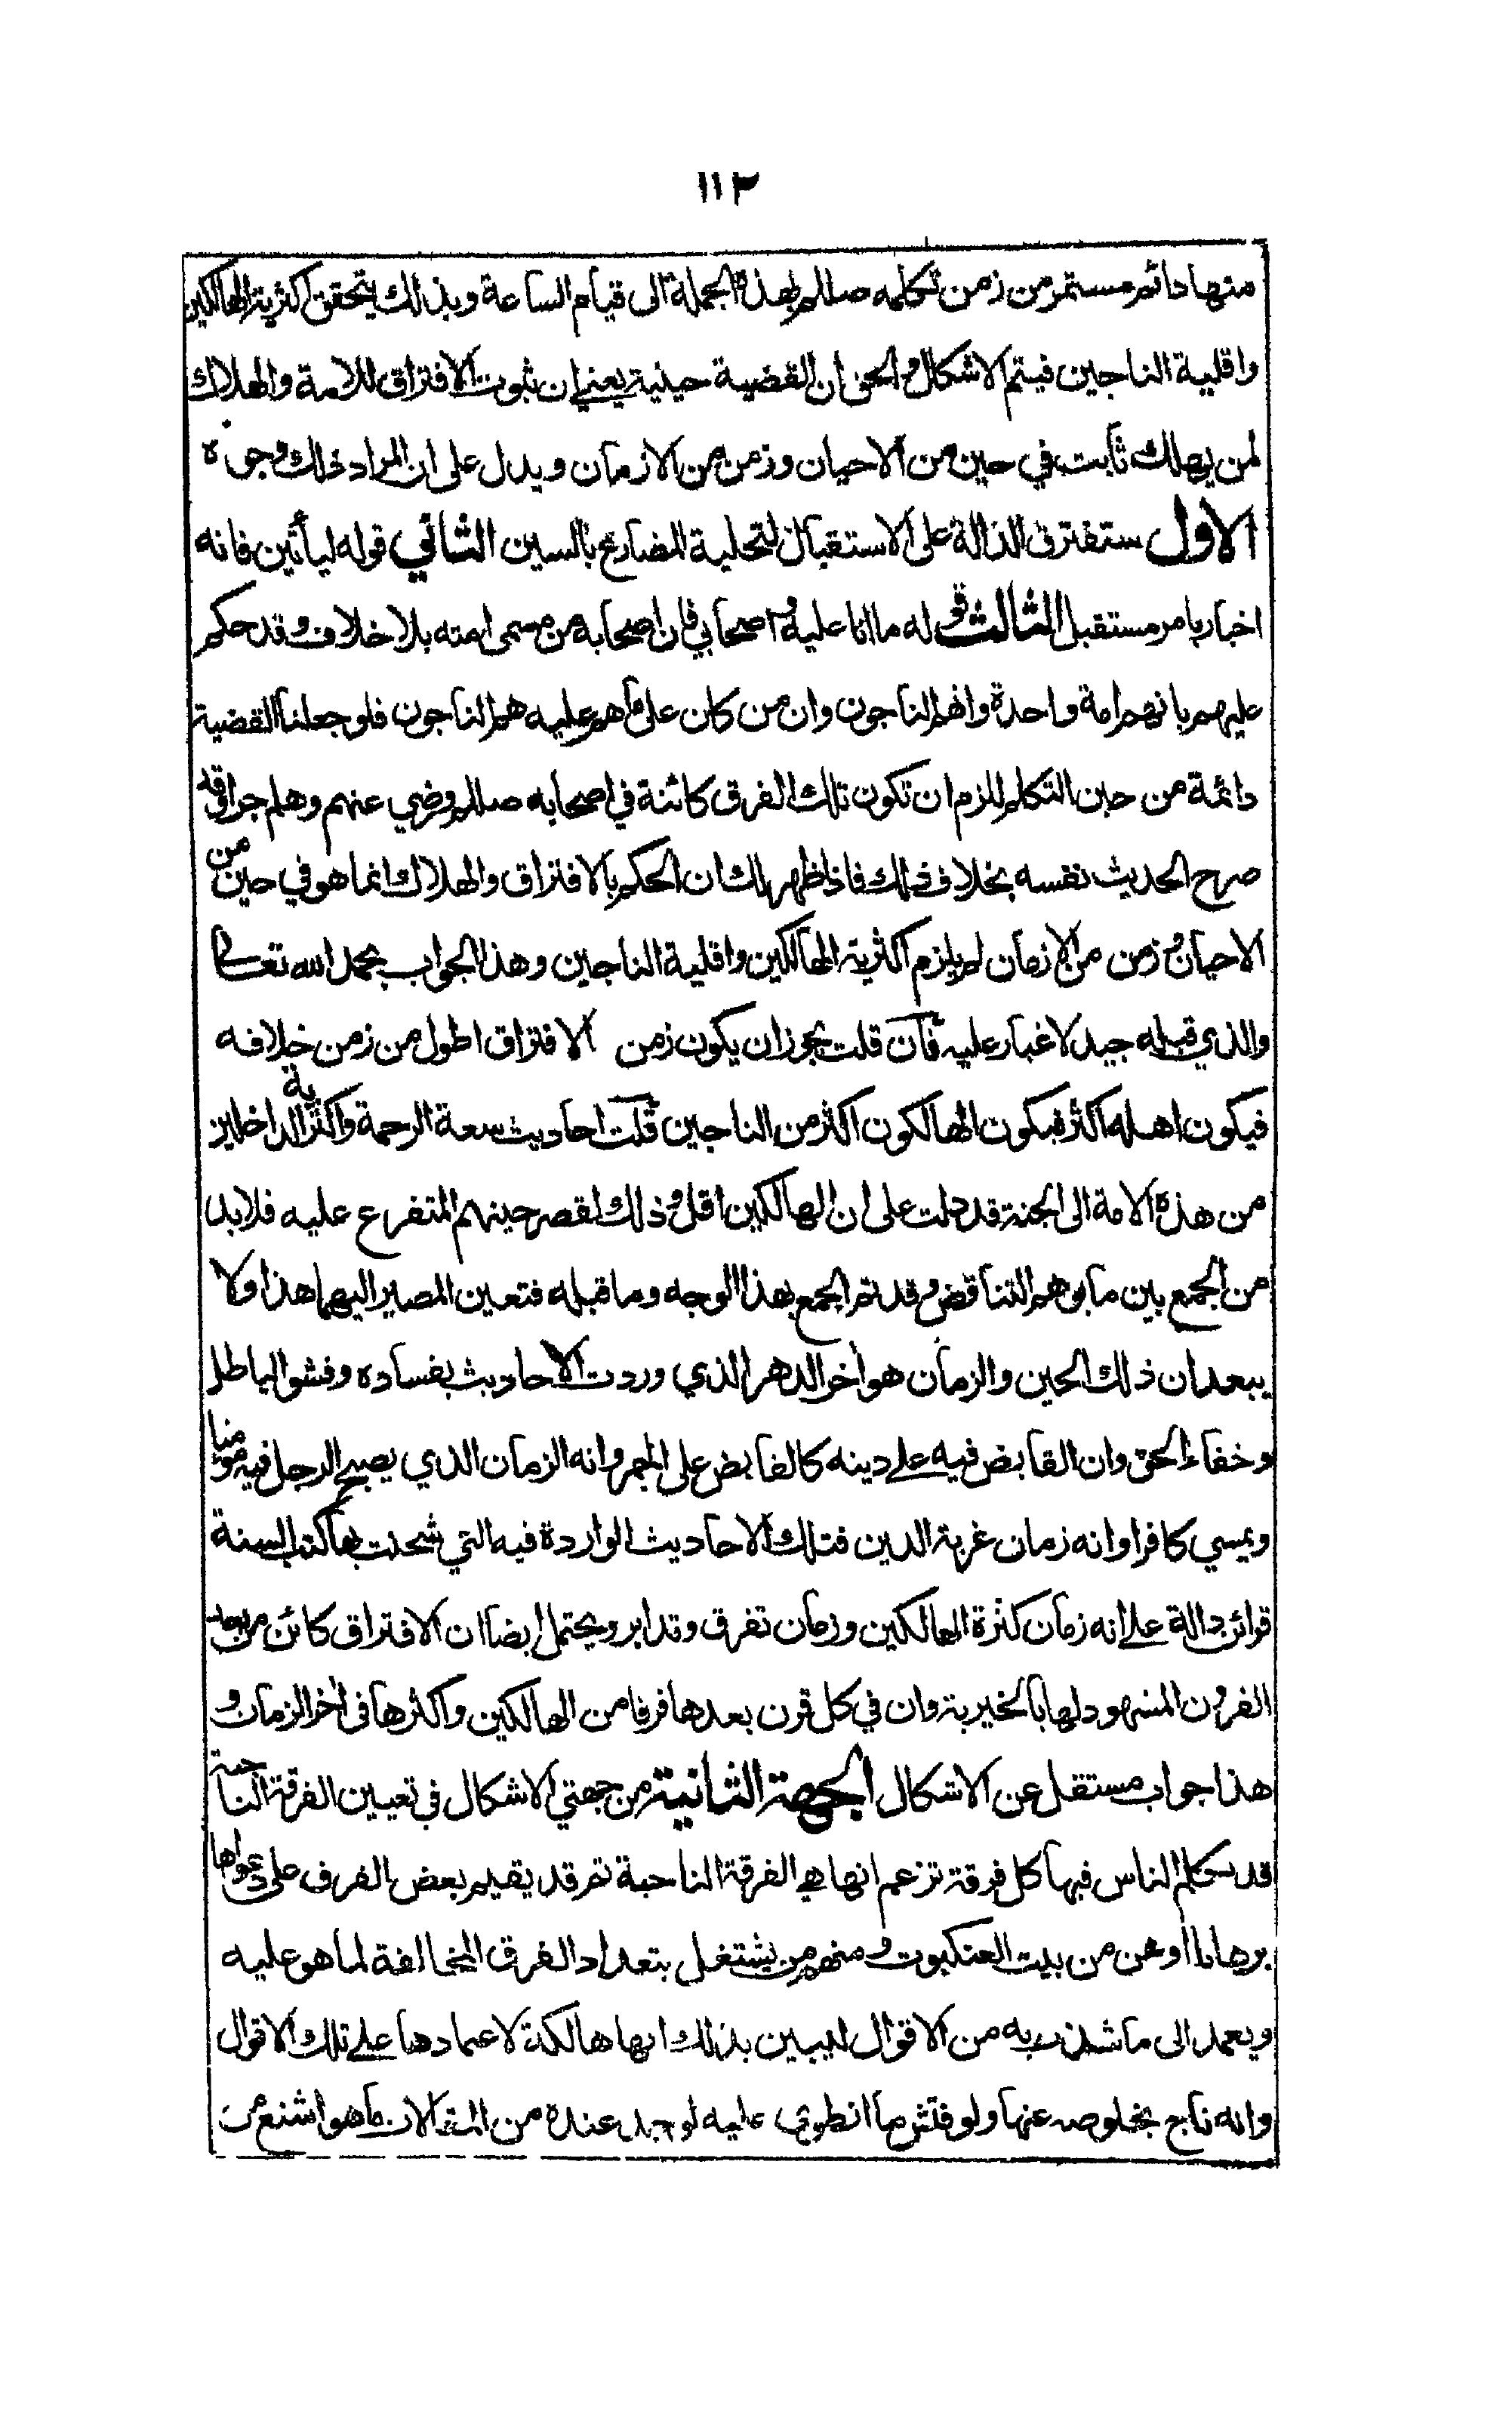 ١١٣
منها دائم مستمر من زمن تكلمه صللم بهذه الجملة الى قيام الساعة وبذلك يتحقق اكثرية الهالكين
واقلية الناجين فيتم الاشكال والحق ان القضية حينية يعني ان ثبوت الافتراق للامة والهلاك
لمن يهلك ثابت في حين من الاحيان وزمن من الازمان ويدل على ان المراد ذلك وجوه
الاول ستفترق الدالة على الاستقبال لتحلية المضارع بالسين الثاني قوله ليأتين فانه
اخبار بامر مستقبل الثالث قوله ما انا عليه واصحابي فان اصحابه من مسمى امته بلا خلاف وقد حكم
عليهم بانهم امة واحدة وانهم الناجون وان من كان على ما هم عليه هم الناجون فلو جعلنا القضية
دائمة من حين التكلم للزم ان تكون تلك الفرق كائنة في اصحابه صللم ورضي عنهم وهلم جرا وقد
صرح الحديث نفسه بخلاف ذلك فاذا ظهر لك ان الحكم بالافتراق والهلاك انما هو في حين من
الاحيان وزمن من الازمان لم يلزم اكثرية الهالكين واقلية الناجين وهذا الجواب بحمد الله تعالى
والذي قبله جيد لا غبار عليه فان قلت يجوز ان يكون زمن الافتراق اطول من زمن خلافه
فيكون اهله اكثر فيكون الهالكون اكثر من الناجين قلت احاديث سعة الرحمة واكثرية الداخلين
من هذه الامة الى الجنة قد دلت على ان الهالكين اقل وذلك لقصر حينهم المتفرع عليه فلا بد
من الجمع بين ما يوهم التناقض وقد تم الجمع بهذا الوجه وما قبله فتعين المصير اليهما هذا ولا
يبعد ان ذلك الحين والزمان هو آخر الدهر الذي وردت الاحاديث بفساده وفشو الباطل
وخفاء الحق وان القابض فيه على دينه كالقابض على الجمر وانه الزمان الذي يصبح الرجل فيه مؤمنا
ويمسي كافرا وانه زمان غربة الدين فتلك الاحاديث الواردة فيه التي شحنت بها كتب السنة
قرائن دالة على انه زمان كثرة الهالكين وزمان تفرق وتدابر ويحتمل ايضا ان الافتراق كائن من بعد
القرون المشهود لها بالخيرية وان في كل قرن بعدها فرقا من الهالكين واكثرها في آخر الزمان و
هذا جواب مستقل عن الاشكال الجهة الثانية من جهتي الاشكال في تعيين الفرقة الناجية
قد تكلم الناس فيها كل فرقة تزعم انها هي الفرقة الناجية ثم قد يقيم بعض الفرق على دعواها
برهانا اوهن من بيت العنكبوت ومنهم من يشتغل بتعداد الفرق المخالفة لما هو عليه
ويعمد الى ما شذت به من الاقوال ليبين بذلك انها هالكة لاعتمادها على تلك الاقوال
وانه ناج بخلوصه عنها ولو فتش ما انطوى عليه لوجد عنده من المقالات ما هو اشنع من